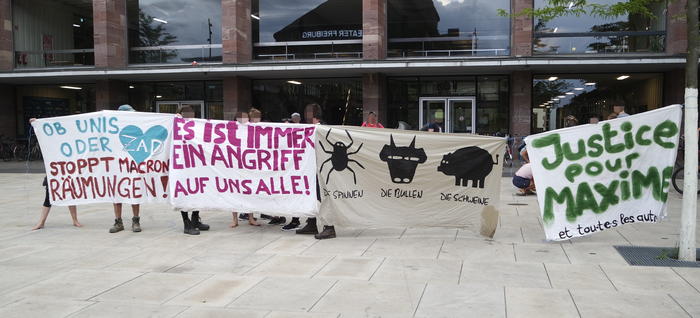 THEATER FREIBURG
OB UNIS
ODER ZAD
STOPPT MACRON
RÄUMUNGEN!
ES IST IMMER
EIN ANGRIFF
AUF UNS ALLE!
SPINNEN
DIE BULLEN
DIE SCHWEINE
Justice
pour
MAXIME
et tou·te·s les autres